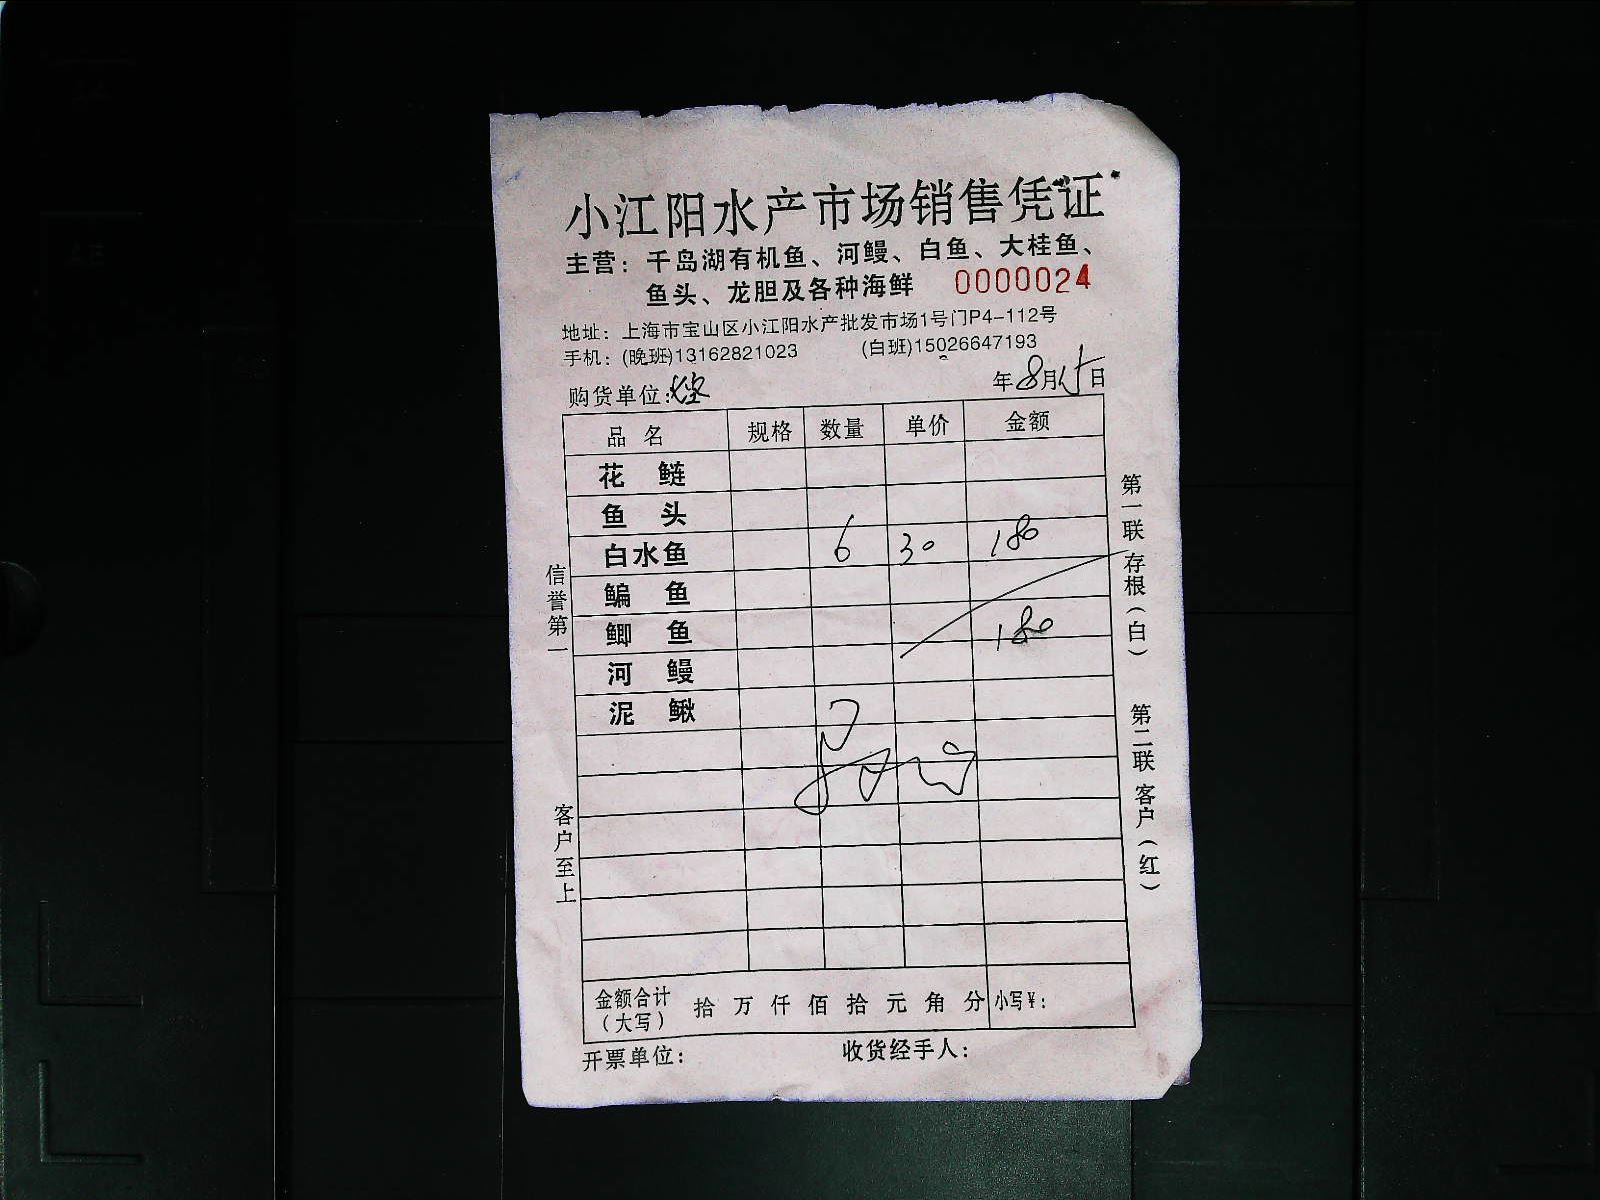 小江阳水产市场销售凭证
主营：千岛湖有机鱼、河鳗、白鱼、大桂鱼、
鱼头、龙胆及各种海鲜 0000024
地址：上海市宝山区小江阳水产批发市场1号门P4-112号
手机：(晚班)13162821023 (白班)15026647193
购货单位： 年8月15日
品名 规格 数量 单价 金额
花鲢
鱼头
白水鱼 6 30 180
鳊鱼
鲫鱼 180
河鳗
泥鳅
金额合计（大写） 拾 万 仟 佰 拾 元 角 分 小写¥：
开票单位： 收货经手人：
信誉第一
客户至上
第一联 存根（白）
第二联 客户（红）